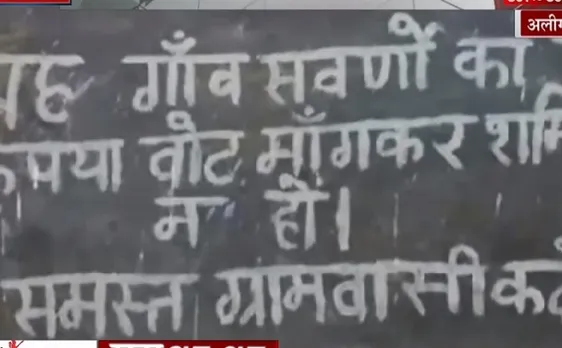 अलीग
यह गाँव सवर्णों का
कृपया वोट माँगकर शर्मि
न हों।
समस्त ग्रामवासी